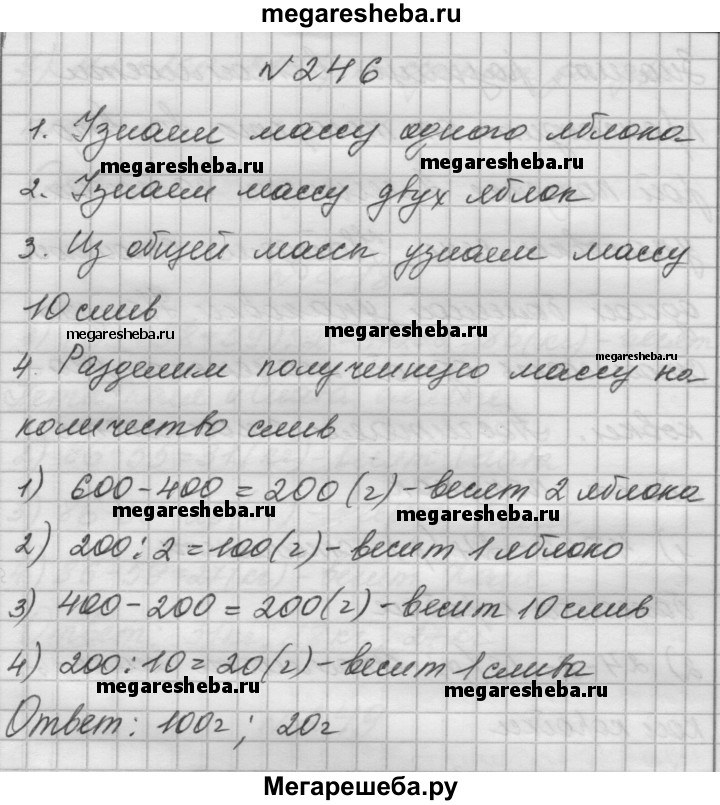 megaresheba.ru
№246
1. Узнаем массу одного яблока
megaresheba.ru megaresheba.ru
2. Узнаем массу двух яблок
3. Из общей массы узнаем массу
10 слив
megaresheba.ru megaresheba.ru
megaresheba.ru
4. Разделим полученную массу на
количество слив
1) 600-400=200(г)-весят 2 яблока
megaresheba.ru megaresheba.ru
2) 200:2=100(г)-весит 1 яблоко
3) 400-200=200(г)-весит 10 слив
4) 200:10=20(г)-весит 1 слива
megaresheba.ru megaresheba.ru
Ответ: 100г; 20г
Мегарешеба.ру